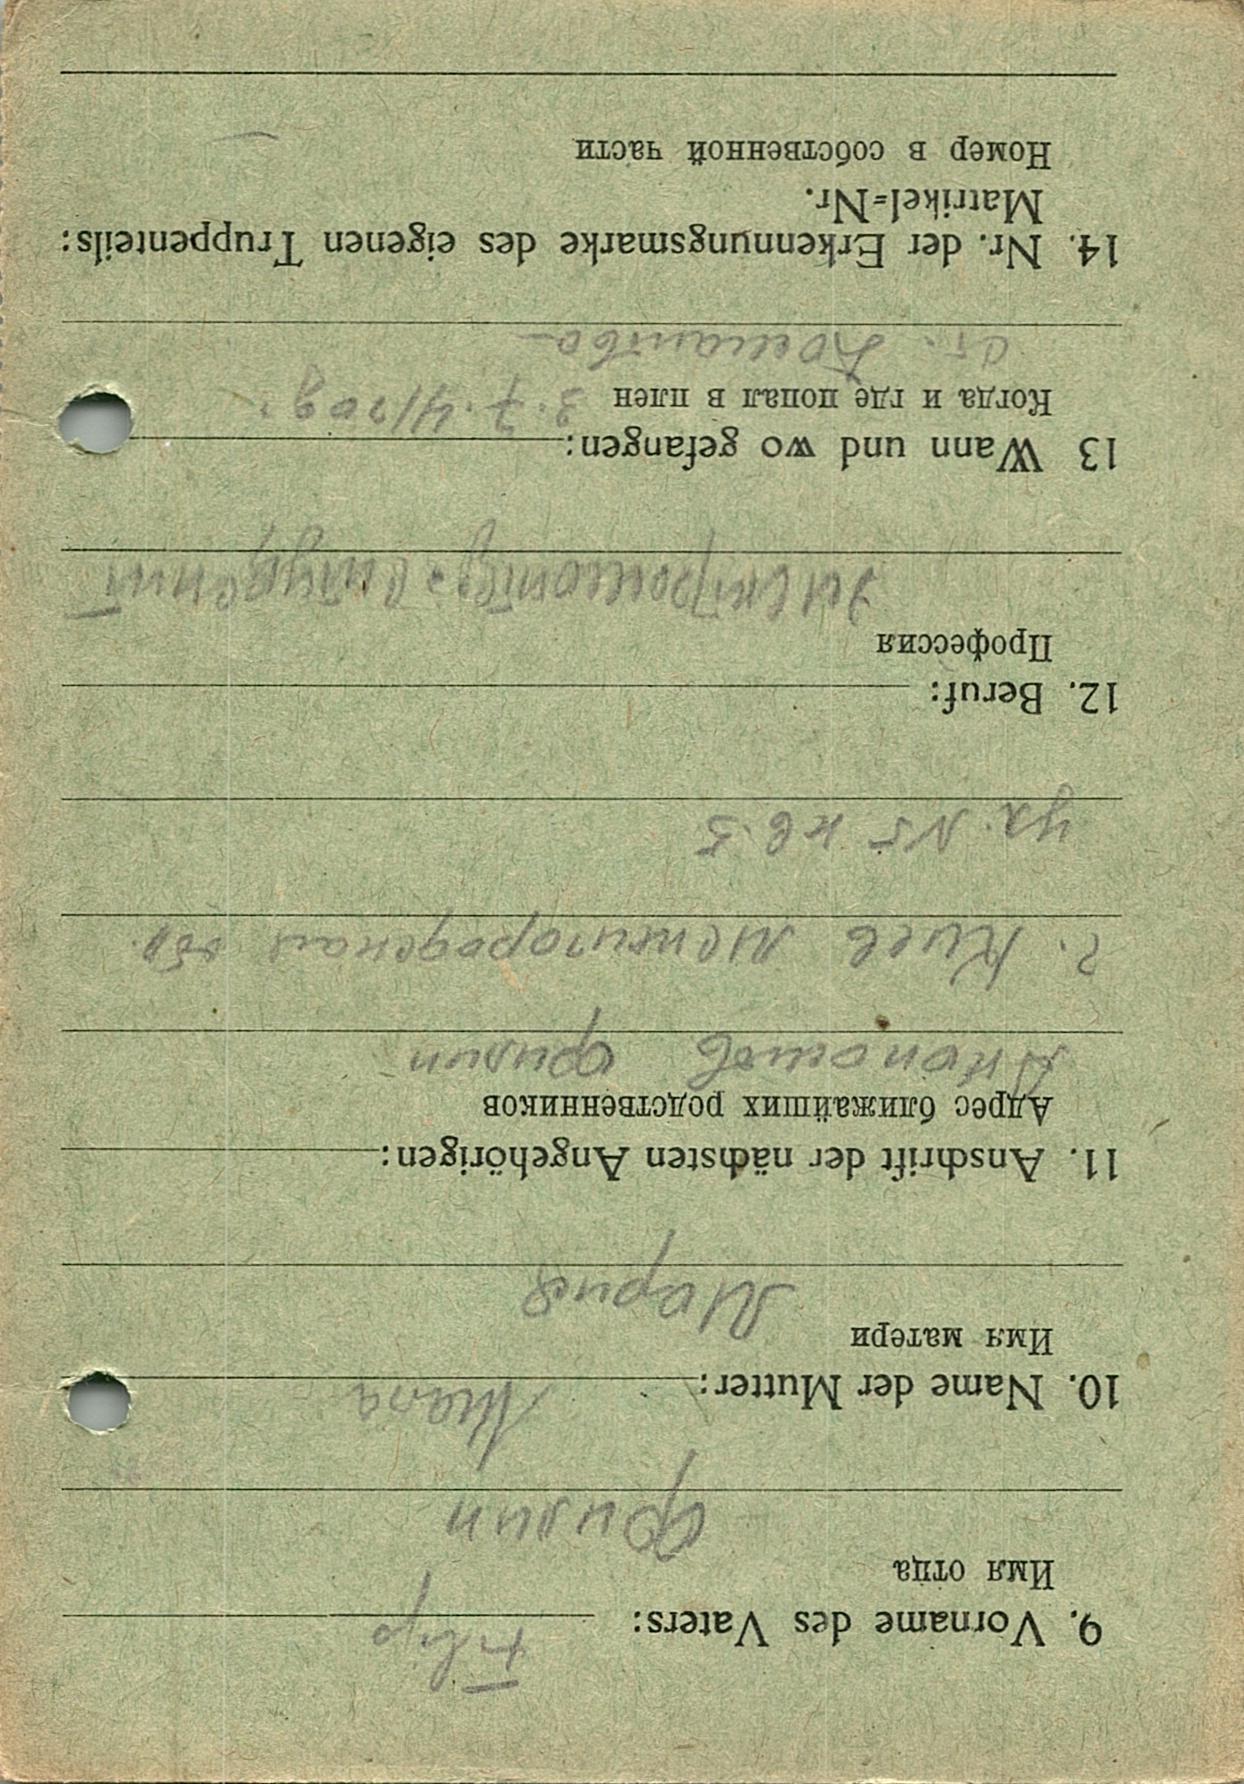 9. Vorname des Vaters: Filip
Имя отца
Филип
10. Name der Mutter:
Имя матери
Мария
11. Anschrift der nächsten Angehörigen:
Адрес ближайших родственников
Филип
г. Киев
ул. N5 кв. 5
12. Beruf:
Профессия
студент
13 Wann und wo gefangen:
Когда и где попал в плен 3.7.41 год.
ст.
14. Nr. der Erkennungsmarke des eigenen Truppenteils:
Matrikel=Nr.
Номер в собственной части —